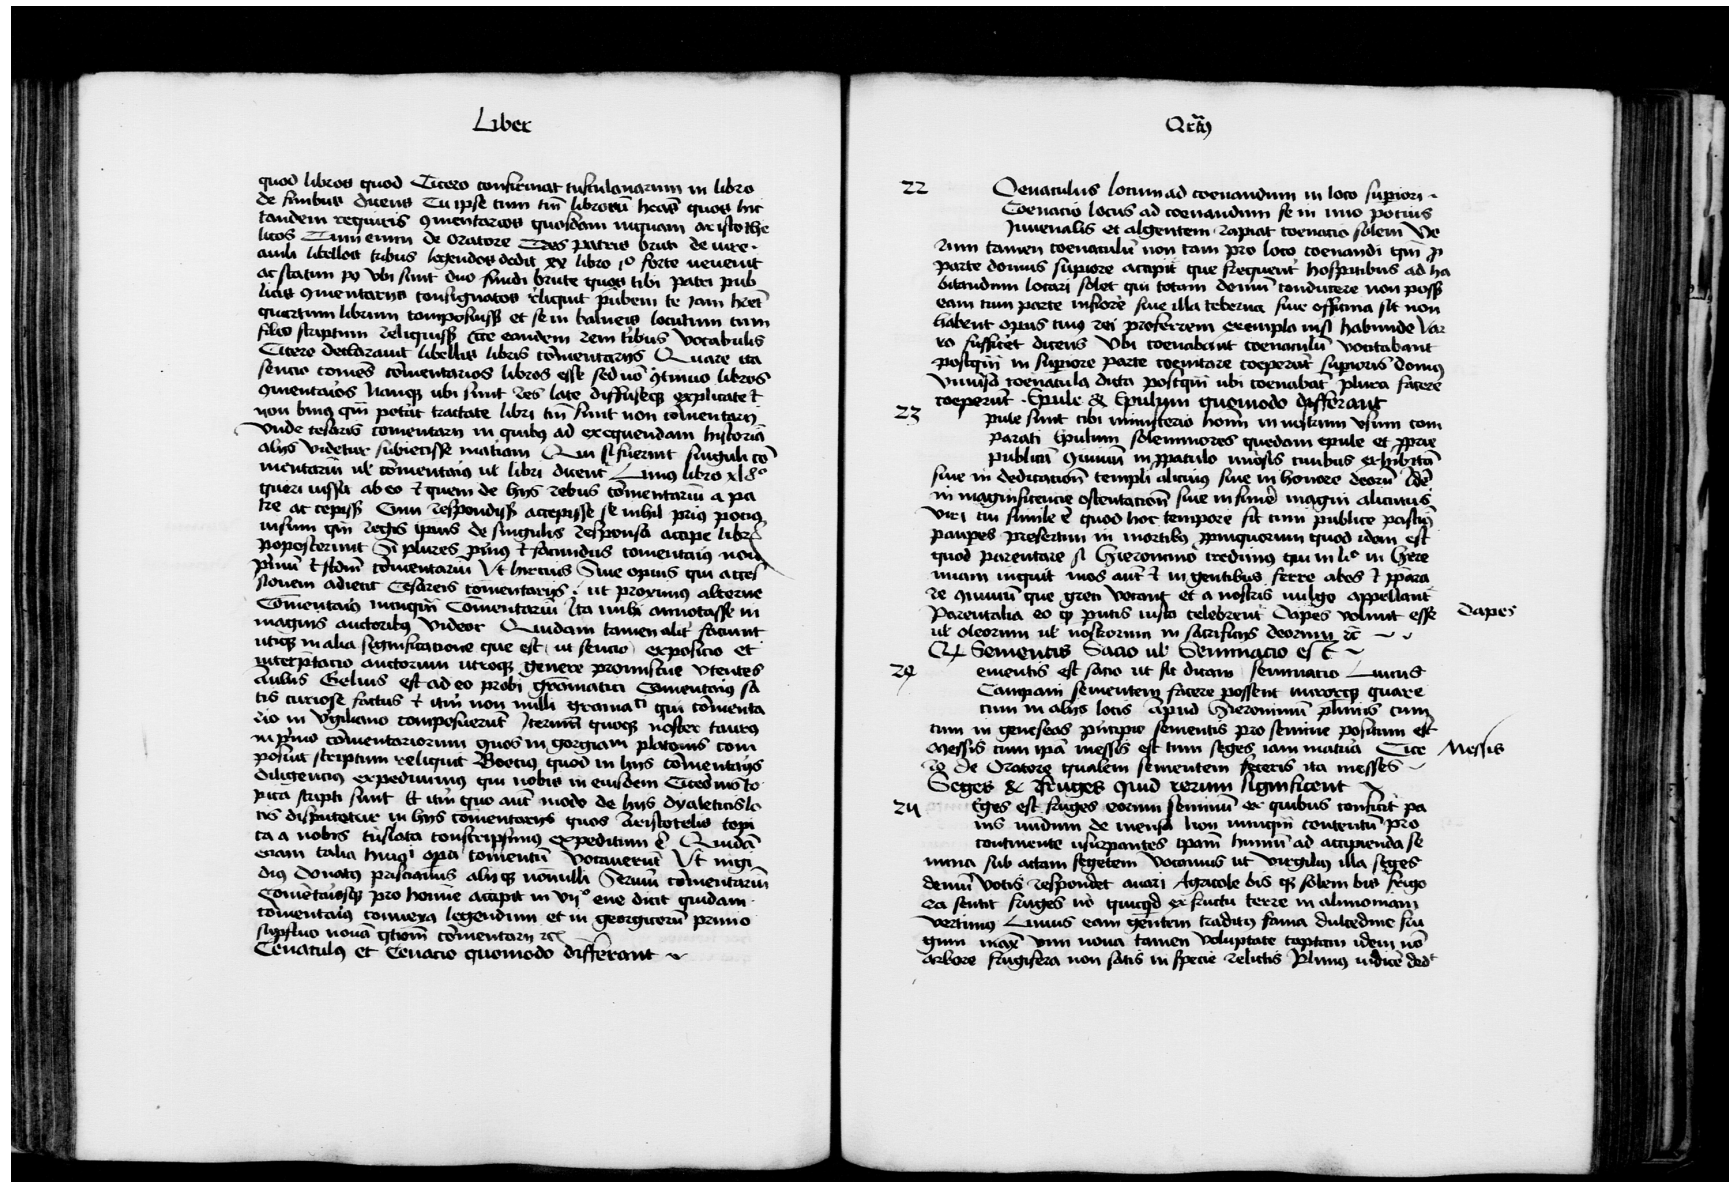 Liber
quod libros quod Cicero confirmat tusculanarum in libro
de finibus dicens Tu ipse cum tm̄ librorū heas quos hic
tandem requiris ꝯmentarios quosdam inquam aristothe
licos Tum enim de oratore Tres patris bruti de iure
civili libellos tribus legendos dedit ex libro i⁰ forte uenerit
ac statim po ubi sunt duo fundi brute quos tibi patri pub
licis ꝯmentariis consignatos reliquit
quartum librum composuisse et se in balneis locutum cum
filio scriptum reliquisse Ecce eandem rem tribus vocabulis
Cicero declarauit libellis libris cōmentariis Quare ita
sencio comēs cōmentarios libros esse sed nō ꝯtinuo libros
ꝯmentarios Namque ubi sunt res late diffuseque explicate et
non breuius qm̄ petat tractate libri tm̄ sunt non cōmentarii
Vnde cesaris comentarii in quibus ad exequendam historiā
aliis videtur subiecisse materiam Qui si fuerint singuli cō
mentariū uel cōmentarius uel libri dicent Liuius libro xl 8⁰
queri iussit ab eo et quem de hiis rebus cōmentariū a pa
tre accepisset Cum respondisset accepisse se nihil prius potius
iussum qm̄ regis ipius de singulis responsa accipe librum
poposcerunt Si plures primus et secundus comentarius non
primū et secundum cōmentarium Vt hircius Siue opius qui acces
sionem adiecit Cesareis comentariis ut proximus alterne
Cōmentarius nunquam Cōmentariū Ita mihi annotasse in
magnis auctoribus videor Quidam tamen aliter faciunt
utique in alia significatione que est ut sencio exposicio et
interpretacio auctorum utroque genere promiscue vtentes
Aulus Gelius est ad eo probi gramatici Comentarius sa
tis curiose factus et itm̄ non nulli gramatici qui cōmenta
rio in virgilium composuerunt Iterum quoque noster taurus
in primo cōmentariorum quos in gorgiam platonis com
posuit scriptum reliquit Boecius quod in hiis cōmentariis
diligencius expediuimus qui nobis in eiusdem Ciceronis to
pica scripti sunt Et itm̄ quo autem modo de hiis dyaleticis lo
cis disputetur in hiis comentariis quos in Aristotelis topi
ca a nobis translata conscripsimus expeditum est Quidā
eciam talia huiusmodi opera comentum vocauerūt Vt nigi
dius Donatus priscianus aliique nonnulli Seruiū cōmentarium
Comētariosque pro homine accipit in vii⁰ ene dicit quidam
comentarius conuexa legendum et in georgicorū primo
supfluo nouā qtiom̄ cōmentarii rc̄
Cenaculus et Cenacio quomodo differant
Qrtus
22 Cenaculus locum ad coenandum in loco supiori
Coenacio locus ad coenandum se in imo pocius
Juuenalis et algentem rapiat coenacio solem Ve
rum tamen coenaculū non tam pro loco coenandi qm̄ p
parte domus supiore accipit que frequenter hospitibus ad ha
bitandum locari solet qui totam domū conducere non possūt
eam cum parte inferiore siue illa teberna siue officina sit non
habent opus cuius rei proferrem exempla nisi habunde Var
ro sufficeret dicens Vbi coenabant coenaculū vocitabant
postqm̄ in supiore parte coenitare coeperat supioris domus
vniuersa coenacula dicta postqm̄ ubi coenabāt plura facere
coeperūt Epule & Epulum quomodo differant
23 pule sunt cibi ministerio hominū in nostrum vsum com
parati Epulum solemniores quedam epule et pprie
publicū ꝯuiuiū in ppatulo uniuersis ciuibus exhibitū
siue in dedicationē templi alicuius siue in honore deorū idē
in magnificencie ostentationē siue in funere magni alicuius
viri cui simile est quod hoc tempore fit cum publice pascūt
paupes presertim in mortibus ppinquorum quod idem est
quod parentare si Hieronimo credimus qui in li⁰ in Here
miam inquit mos autem et in gentibus ferre cibos et ppara
re ꝯuiuiū que greci vocant et a nostris uulgo appellant
Parentalia eo quod parentis iusta celebrent Dapes volunt esse
uel deorum uel nostrorum in sacrificiis deorum rc̄
Dapes
Sementis Sacio uel Seminacio est
24 ementis est sacio ut sit dicam seminatio Liuius
Campani sementem facere possent utrorumque quare
cum in aliis locis apud Hieronimū plurimis cum
tum in geneseos principio sementis pro semine positum est
Messis cum ipā messis est tum seges iam matura Cice
Messis
ro de Oratore qualem sementem feceris ita messes
Seges & Fruges Quid rerum significent
25 Eges est fruges eorum seminū ex quibus conficit pa
nis nudum de mensa Non nunqm̄ contentū pro
continente usurpantes ipam humū ad accipienda se
mina sub actam segetem vocamus ut virgilius illa seges
demū votis respondet auari Agricole bis que solem bis frigo
ra sentit fruges uero quicquid ex fructu terre in alimoniam
vertimus Liuius eam gentem traditur fama dulcedine fru
gum maxime vini noua tamen voluptate captam idem nō
arbore frugifera non satis in specie relictis Plinius indice ded